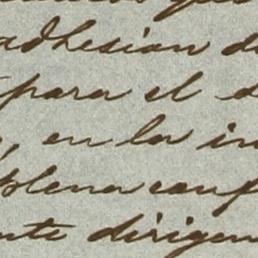 adhesion d
para el
, en la in
plena conf
nte dirigen